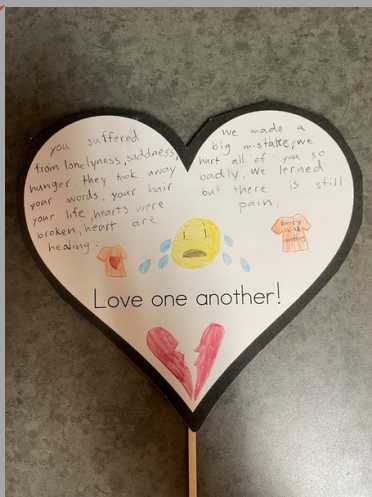 you suffered
from lonelyness, saddness,
hunger. they took away
your words, your hair
your life, hearts were
broken, heart are
healing.
we made a
big mistake, we
hurt all of you so
badly, we lerned
but there is still
pain.
Every
child
matters
Love one another!